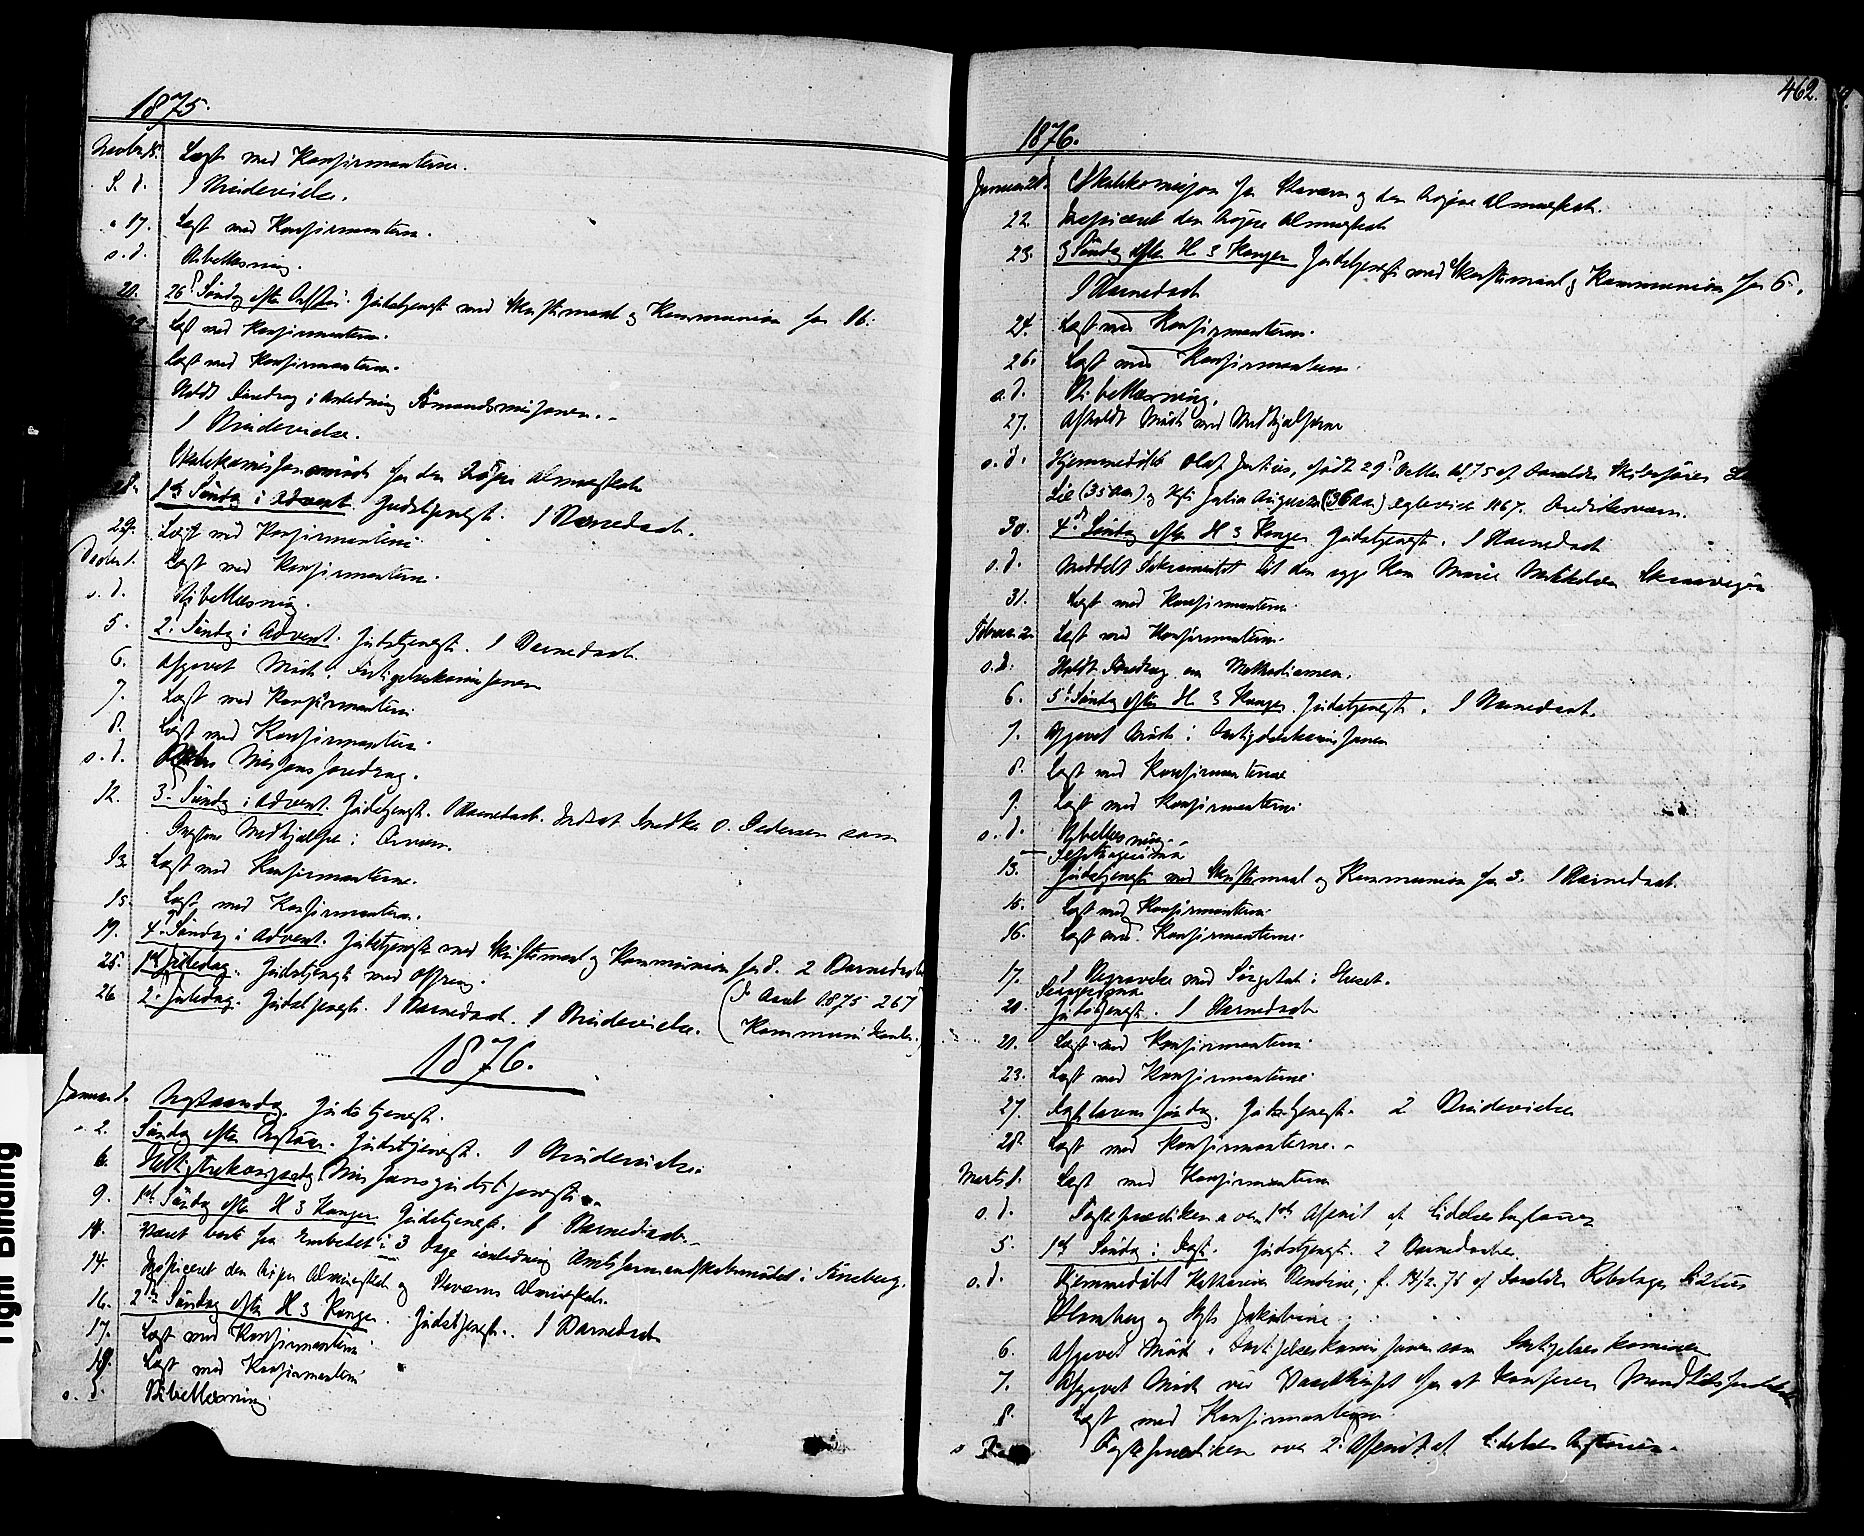 1875.
Novbr. 15. Læst med Konfirmanterne.
S. d. 1 Brudevielse.
" 17. Læst med Konfirmanterne.
s. d. Bibellæsning.
21. 26d Søndag efter Gudstjeneste med Skriftemaal og Kommunion for 16.
Læst med Konfirmanterne.
Læst med Konfirmanterne.
Holdt Foredrag i Anledning Sømandsmisjonen.
1 Brudevielse.
Skolekommisjonsmøde for den høiere Almueskole
28. 1ste Søndag i Advent. Gudstjeneste. 1 Barnedaab.
29. Læst med Konfirmanterne
Decbr. 1. Læst med Konfirmanterne.
s. d. Bibellæsning.
5. 2. Søndag i Advent. Gudstjeneste. 1 Barnedaab.
6. Afgivet Møde i Forligelseskommisjonen
7. Læst med Konfirmanterne
8. Læst med Konfirmanterne.
s. d. Misjonsforedrag.
12. 3. Søndag i Advent. Gudstjeneste. 1 Barnedaab. Indsat O. Pedersen som
Medhjælper i
13. Læst med Konfirmanterne.
15. Læst med Konfirmanterne.
19. 4. Søndag i Advent. Gudstjeneste med Skriftemaal og Kommunion for 8. 2 Barnedaab
25. 1ste Juledag. Gudstjeneste med Offring.
26. 2. Juledag. Gudstjeneste. 1 Barnedaab. 1 Brudevielse. (I Aaret 1875 267
Kommunikanter.)
1876.
Januar 1. Nytaarsdag. Gudstjeneste.
" 2. Søndag efter Nytaar. Gudstjeneste. 1 Brudevielse.
6. Helligtrekongersdag Misjonsgudstjeneste.
9. 1ste Søndag efter H 3 Konger. Gudstjeneste. 1 Barnedaab.
Været borte fra Embedet i 3 Dage i Anledning Amtsformandskabsmødet i Tønsberg.
14. Inspiceret den høiere Almueskole og Staværns Almueskole.
16. 2den Søndag efter H 3 Konger. Gudstjeneste. 1 Barnedaab
17. Læst med Konfirmanterne
19. Læst med Konfirmanterne
s. d. Bibellæsning
462.
1876.
Januar 21. Skolekommisjon for Staværn og den høiere Almueskole.
22. Inspiceret den høiere Almueskole
23. 3 Søndag efter H 3 Konger. Gudstjeneste med Skriftemaal og Kommunion for 6.
1 Barnedaab
24. Læst med Konfirmanterne.
26. Læst med Konfirmanterne.
s. d. Bibellæsning.
27. Afholdt Møde med Medhjælperne
s. d. Hjemmedøbt Olaf Julius, født 29d Oktbr. 1875 af Forældre
Lie (35 Aar) og Julia Augusta (36 Aar) Fredriksværn.
30. 4d Søndag efter H 3 Konger Gudstjeneste. 1 Barnedaab
s. d. Meddelt Sakramentet til den syge Kone Marie
31. Læst med Konfirmanterne.
Februar 2. Læst med Konfirmanterne.
s. d. Holdt Foredrag om Methodismen.
6. 5d Søndag efter H. 3 Konger. Gudstjeneste. 1 Barnedaab.
7. Afgivet Møde i Forligelseskommisjonen
8. Læst med Konfirmanterne
9. Læst med Konfirmanterne.
s. d. Bibellæsning.
Septuagesima
13. Gudstjeneste med Skriftemaal og Kommunion for 3. 1 Barnedaab.
15. Læst med Konfirmanterne.
16. Læst med Konfirmanterne.
17. 1 Begravelse med Sørgetale i Huset.
Sexagesima
20. Gudstjeneste. 1 Barnedaab
21. Læst med Konfirmanterne.
23. Læst med Konfirmanterne.
27. Fastelavens Søndag. Gudstjeneste. 2 Brudevielser
28. Læst med Konfirmanterne.
Marts 1. Læst med Konfirmanterne
s. d. Fasteprædiken over 1ste Afsnit af Lidelseshistorien
5. 1ste Søndag i Faste. Gudstjeneste. 2 Barnedaabe.
s. d. Hjemmedøbt Katharina f. af Forældre
og Jakobine.
6. Afgivet Møde i Forligelseskommisjonen som Forligelseskommisær
7. Afgivet Møde ved for at
8. Læst med Konfirmanterne
s. d. Fasteprædiken over 2d Afsnit af Lidelseshistorien.
Tight Binding